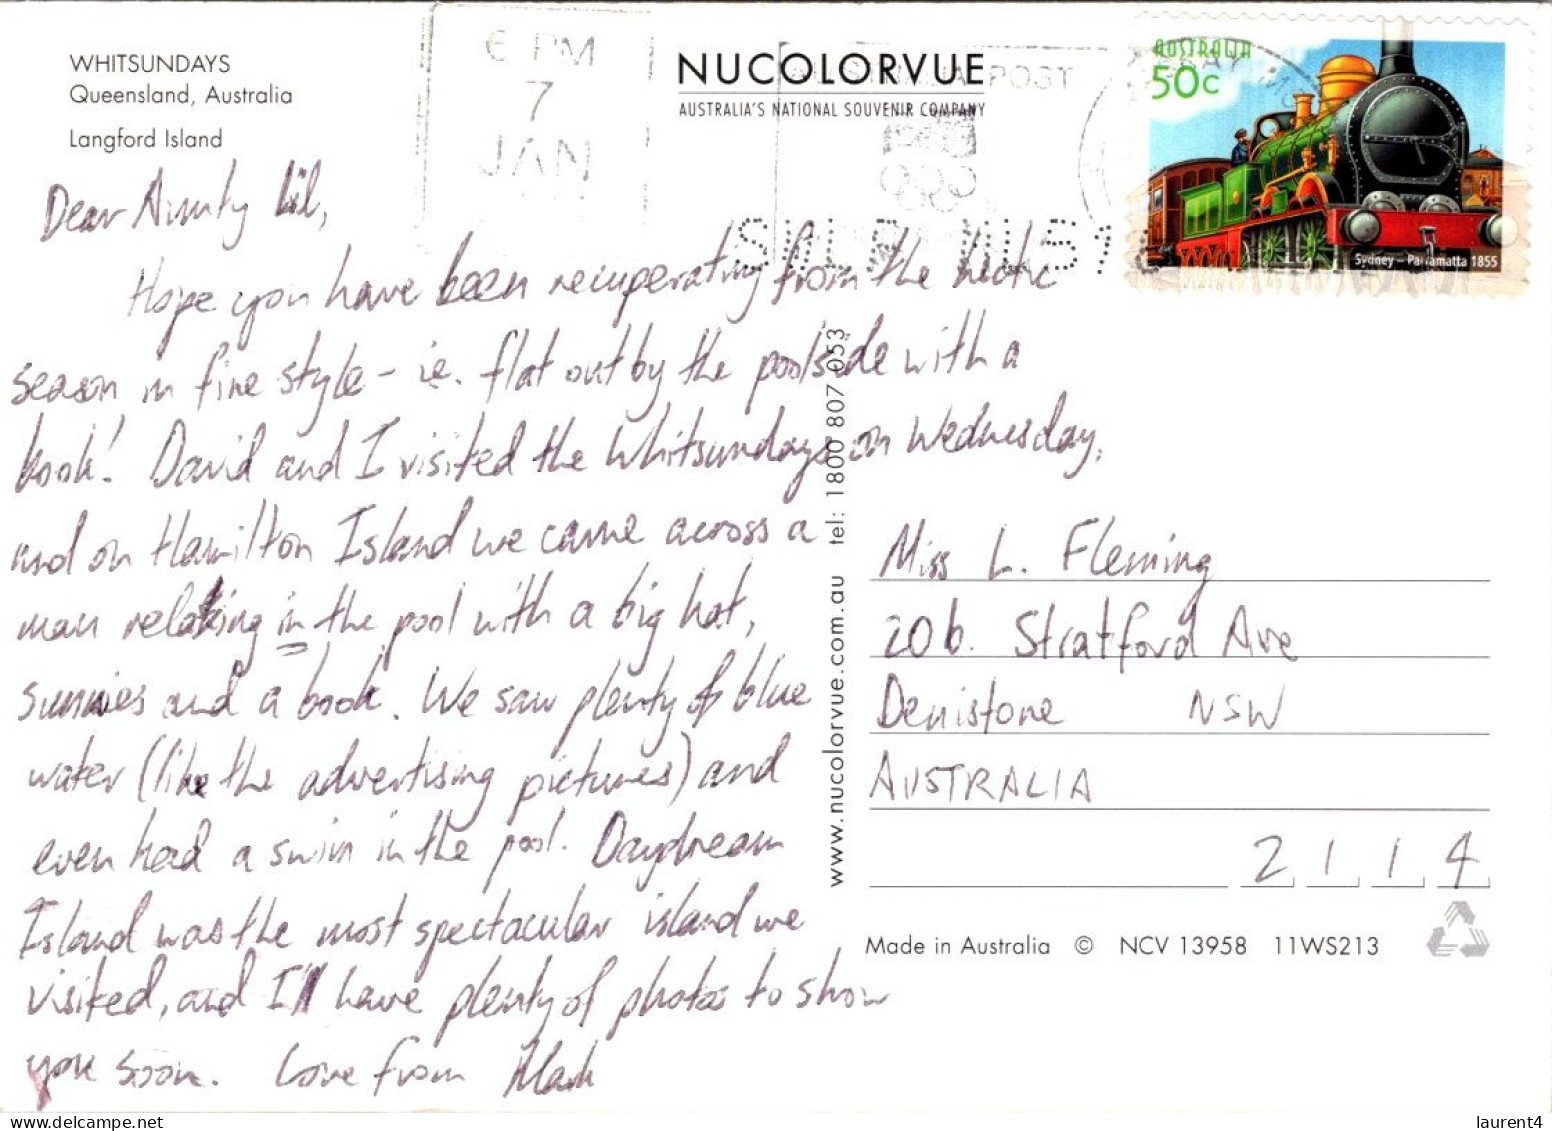 WHITSUNDAYS
Queensland, Australia
Langford Island
6 PM
7
JAN
NUCOLORVUE
AUSTRALIA'S NATIONAL SOUVENIR COMPANY
POST
AUSTRALIA
50c
Sydney – Parramatta 1855
Dear Aunty Lil,
Hope you have been recuperating from the hectic
season in fine style - ie. flat out by the poolside with a
book! David and I visited the Whitsundays on Wednesday,
and on Hamilton Island we came across a
man relaxing in the pool with a big hat,
sunnies and a book. We saw plenty of blue
water (like the advertising pictures) and
even had a swim in the pool. Daydream
Island was the most spectacular island we
visited, and I'll have plenty of photos to show
you soon. Love from Mark
www.nucolorvue.com.au tel: 1800 807 053
Miss L. Fleming
20b. Stratford Ave
Denistone NSW
AUSTRALIA
2 1 1 4
Made in Australia © NCV 13958 11WS213
laurent4